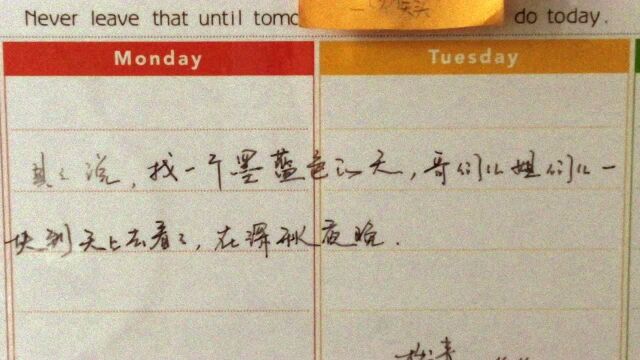 Never leave that until do today.
Monday Tuesday
说,找一个墨蓝色的天,哥们儿姐们儿一
块到天上去看看,在深秋夜晚.